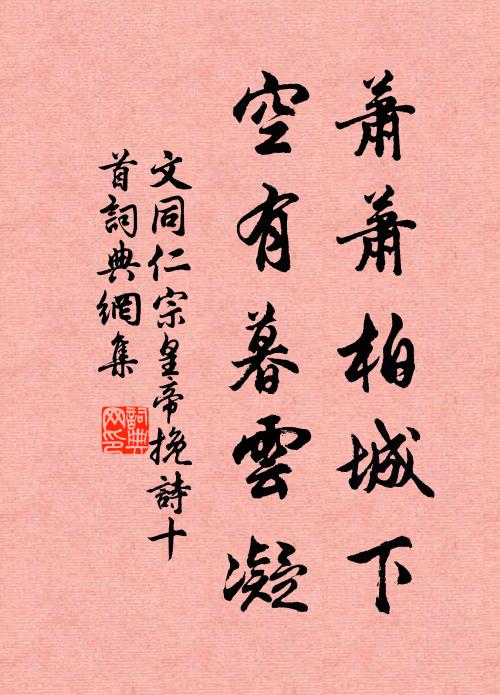 蕭蕭柏城下
空有暮雲凝
文同仁宗皇帝挽詩十
首詞典網集
詞典網印